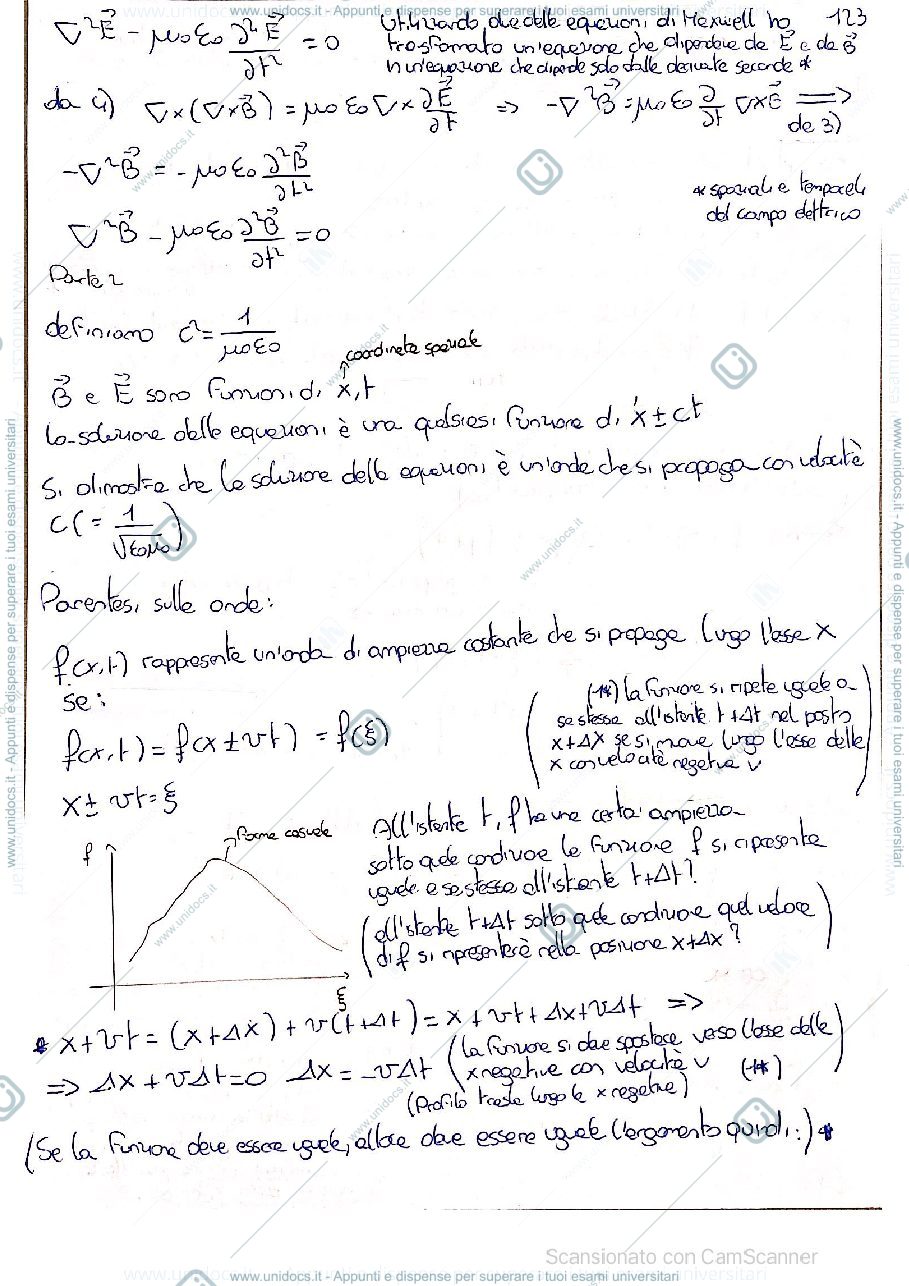 www.unidocs.it - Appunti e dispense per superare i tuoi esami universitari
123
∇²E⃗ - μ₀ε₀ ∂²E⃗/∂t² = 0
Utilizzando due delle equazioni di Maxwell ho
trasformato un'equazione che dipendeva da E⃗ e da B⃗
in un'equazione che dipende solo dalle derivate seconde *
da 4) ∇×(∇×B⃗) = μ₀ε₀ ∇× ∂E⃗/∂t => -∇²B⃗ = μ₀ε₀ ∂/∂t ∇×E⃗ => da 3)
-∇²B⃗ = -μ₀ε₀ ∂²B⃗/∂t²
* spaziali e temporali
del campo elettrico
∇²B⃗ - μ₀ε₀ ∂²B⃗/∂t² = 0
Parte 2
definiamo c² = 1/μ₀ε₀
coordinata spaziale
B⃗ e E⃗ sono funzioni di x,t
La soluzione delle equazioni è una qualsiasi funzione di x ± ct
Si dimostra che la soluzione delle equazioni è un'onda che si propaga con velocità
c (= 1/√ε₀μ₀)
Parentesi sulle onde:
f(x,t) rappresenta un'onda di ampiezza costante che si propaga lungo l'asse x
se:
f(x,t) = f(x ± vt) = f(ξ)
x ± vt = ξ
(1*) la funzione si ripete uguale a
se stessa all'istante t+Δt nel posto
x+Δx se si muove lungo l'asse delle
x con velocità negativa v
f
forma casuale
ξ
All'istante t, f ha una certa ampiezza
sotto quale condizione la funzione f si ripresenta
uguale a se stessa all'istante t+Δt?
(all'istante t+Δt sotto quale condizione quel valore
di f si ripresenterà nella posizione x+Δx?)
* x+vt = (x+Δx) + v(t+Δt) = x + vt + Δx + vΔt =>
=> Δx + vΔt = 0 Δx = -vΔt
(la funzione si deve spostare verso l'asse delle
x negative con velocità v) (1*)
(Profilo trasla lungo le x negative)
(Se la funzione deve essere uguale, allora deve essere uguale l'argomento quindi:) *
Scansionato con CamScanner
www.unidocs.it - Appunti e dispense per superare i tuoi esami universitari